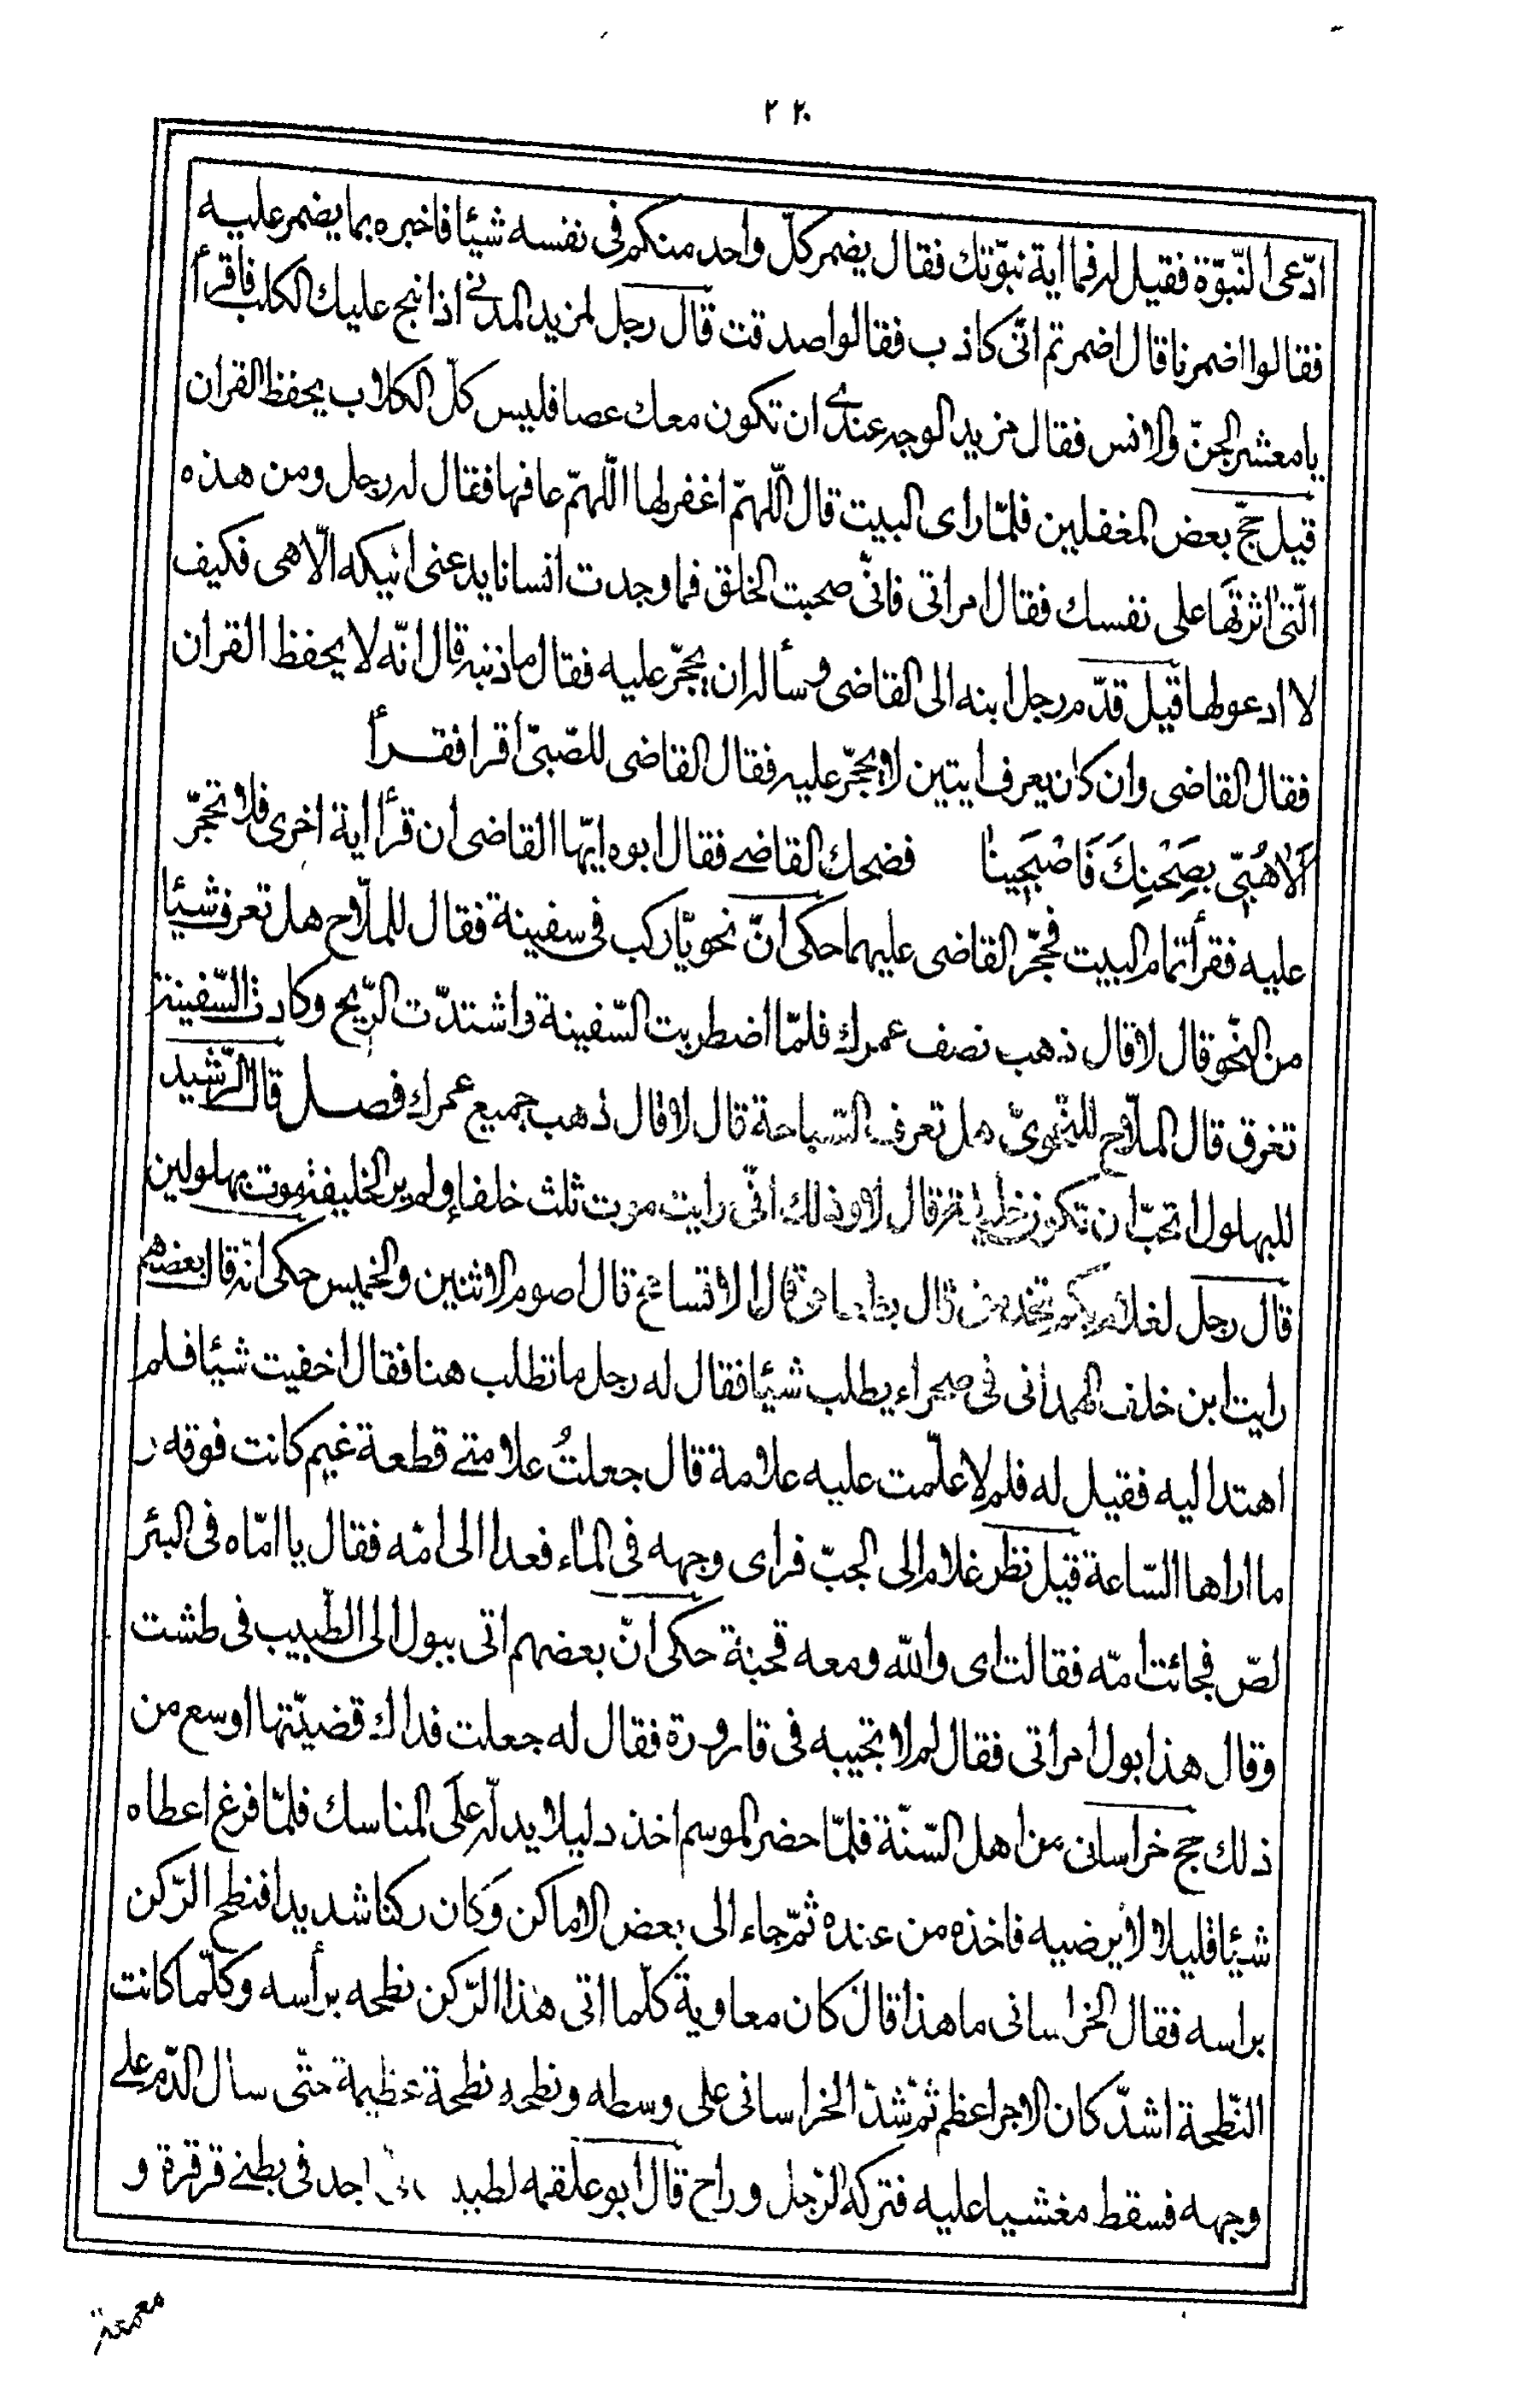 ٢٢٠
ادّعى النّبوّة فقيل له فما اية نبوّتك فقال يضمر كلّ واحد منكم فى نفسه شيئا فاخبره بما يضمر عليه
فقالوا اضمرنا قال اضمرتم انّى كاذب فقالوا صدقت قال رجل لمزيد المدنى اذا نبح عليك الكلب فاقرأ
يا معشر الجنّ والانس فقال مزيد الوجه عندى ان تكون معك عصا فليس كلّ الكلاب يحفظ القران
قيل حجّ بعض المغفلين فلمّا راى البيت قال اللّهمّ اغفر لها اللّهمّ عافها فقال له رجل ومن هذه
الّتى اثرتَها على نفسك فقال امراتى فانّى صحبت الخلق فما وجدت انسانا يدعنى انيكه الّا هى فكيف
لا ادعو لها قيل قدّم رجل ابنه الى القاضى وسأله ان يحجّر عليه فقال ما ذنبه قال انّه لا يحفظ القران
فقال القاضى وان كان يعرف ايتين لا يحجّر عليه فقال القاضى للصّبىّ اقرا فقرأ
اَلاهُبّى بِصَحْنِكَ فَاصْبَحِينا فضحك القاضى فقال ابوه ايّها القاضى ان قرأ اية اخرى فلا تحجّر
عليه فقرأ تمام البيت فحجّر القاضى عليهما حكى انّ نحويّا ركب فى سفينة فقال للملّاح هل تعرف شيئا
من النّحو قال لا قال ذهب نصف عمرك فلمّا اضطربت السّفينة واشتدّت الرّيح وكادت السّفينة
تغرق قال الملّاح للنّحوىّ هل تعرف السّباحة قال لا قال ذهب جميع عمرك فصل قال الرّشيد
للبهلول اتحبّ ان تكون خليفة قال لا وذلك انّى رايت موت ثلث خلفاء ولم ير الخليفة موت بهلولين
قال رجل لغلام بكم تخدمنى قال بطعامى قال لا تسامح قال اصوم الاثنين والخميس حكى انّه قال بعضهم
رايت ابن خلف الهمدانى فى صحراء يطلب شيئا فقال له رجل ما تطلب هنا فقال اخفيت شيئا فلم
اهتد اليه فقيل له فلم لا علّمت عليه علامة قال جعلتُ علامتى قطعة غيم كانت فوقه و
ما اراها السّاعة قيل نظر غلام الى الجبّ فراى وجهه فى الماء فعدا الى امّه فقال يا امّاه فى البئر
لصّ فجائت امّه فقالت اى واللّه ومعه قحبة حكى انّ بعضهم اتى ببول الى الطّبيب فى طشت
وقال هذا بول امراتى فقال لم لا تجيبه فى قارورة فقال له جعلت فداك قضيّتها اوسع من
ذلك حج خراسانى من اهل السّنّة فلمّا حضر الموسم اخذ دليلا يدلّه على المناسك فلمّا فرغ اعطاه
شيئا قليلا لا يرضيه فاخذه من عنده ثمّ جاء الى بعض الاماكن وكان ركنا شديدا فنطح الرّكن
براسه فقال الخراسانى ما هذا قال كان معاوية كلّما اتى هذا الرّكن نطحه برأسه وكلّما كانت
النّطحة اشدّ كان الاجر اعظم ثمّ شدّ الخراسانى على وسطه ونطحه نطحة عظيمة حتّى سال الدّم على
وجهه فسقط مغشيا عليه فتركه الرّجل وراح قال ابو علقمه لطبيب اجد فى بطنى قرقرة و
معمعة